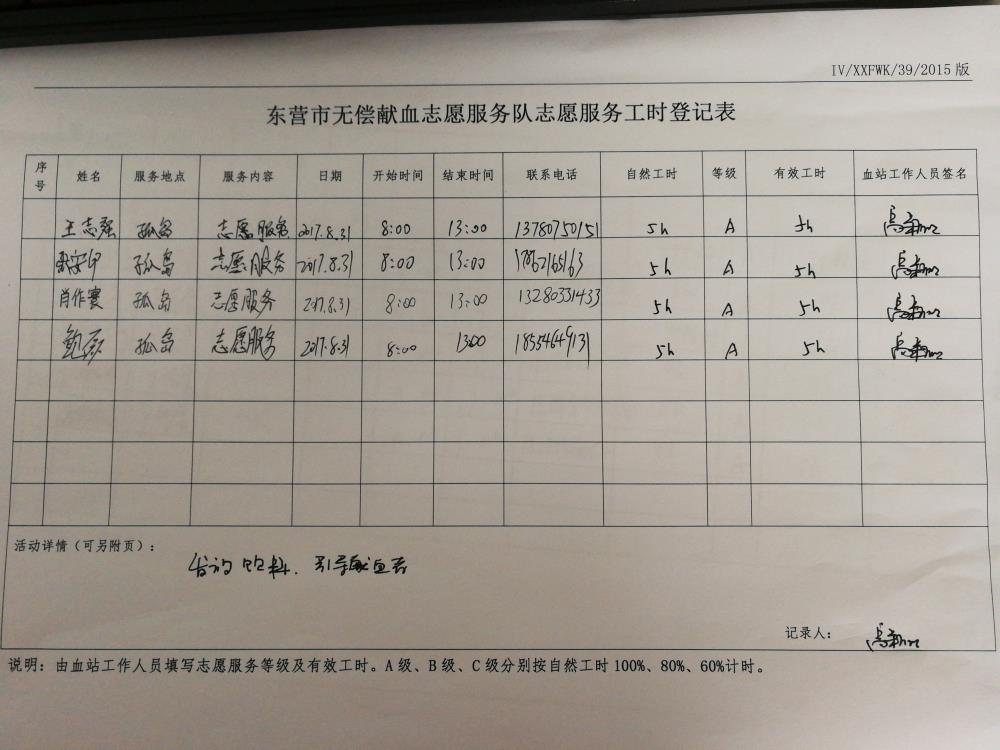 IV/XXFWK/39/2015版
东营市无偿献血志愿服务队志愿服务工时登记表
序号 姓名 服务地点 服务内容 日期 开始时间 结束时间 联系电话 自然工时 等级 有效工时 血站工作人员签名
王志强 孤岛 志愿服务 2017.8.31 8:00 13:00 13780750151 5h A 5h
孤岛 志愿服务 2017.8.31 8:00 13:00 17862165163 5h A 5h
肖作赛 孤岛 志愿服务 2017.8.31 8:00 13:00 13280331433 5h A 5h
鲍磊 孤岛 志愿服务 2017.8.31 8:00 13:00 18554649131 5h A 5h
活动详情（可另附页）：
发放饮料．引导献血者
记录人：
说明：由血站工作人员填写志愿服务等级及有效工时。A级、B级、C级分别按自然工时100%、80%、60%计时。